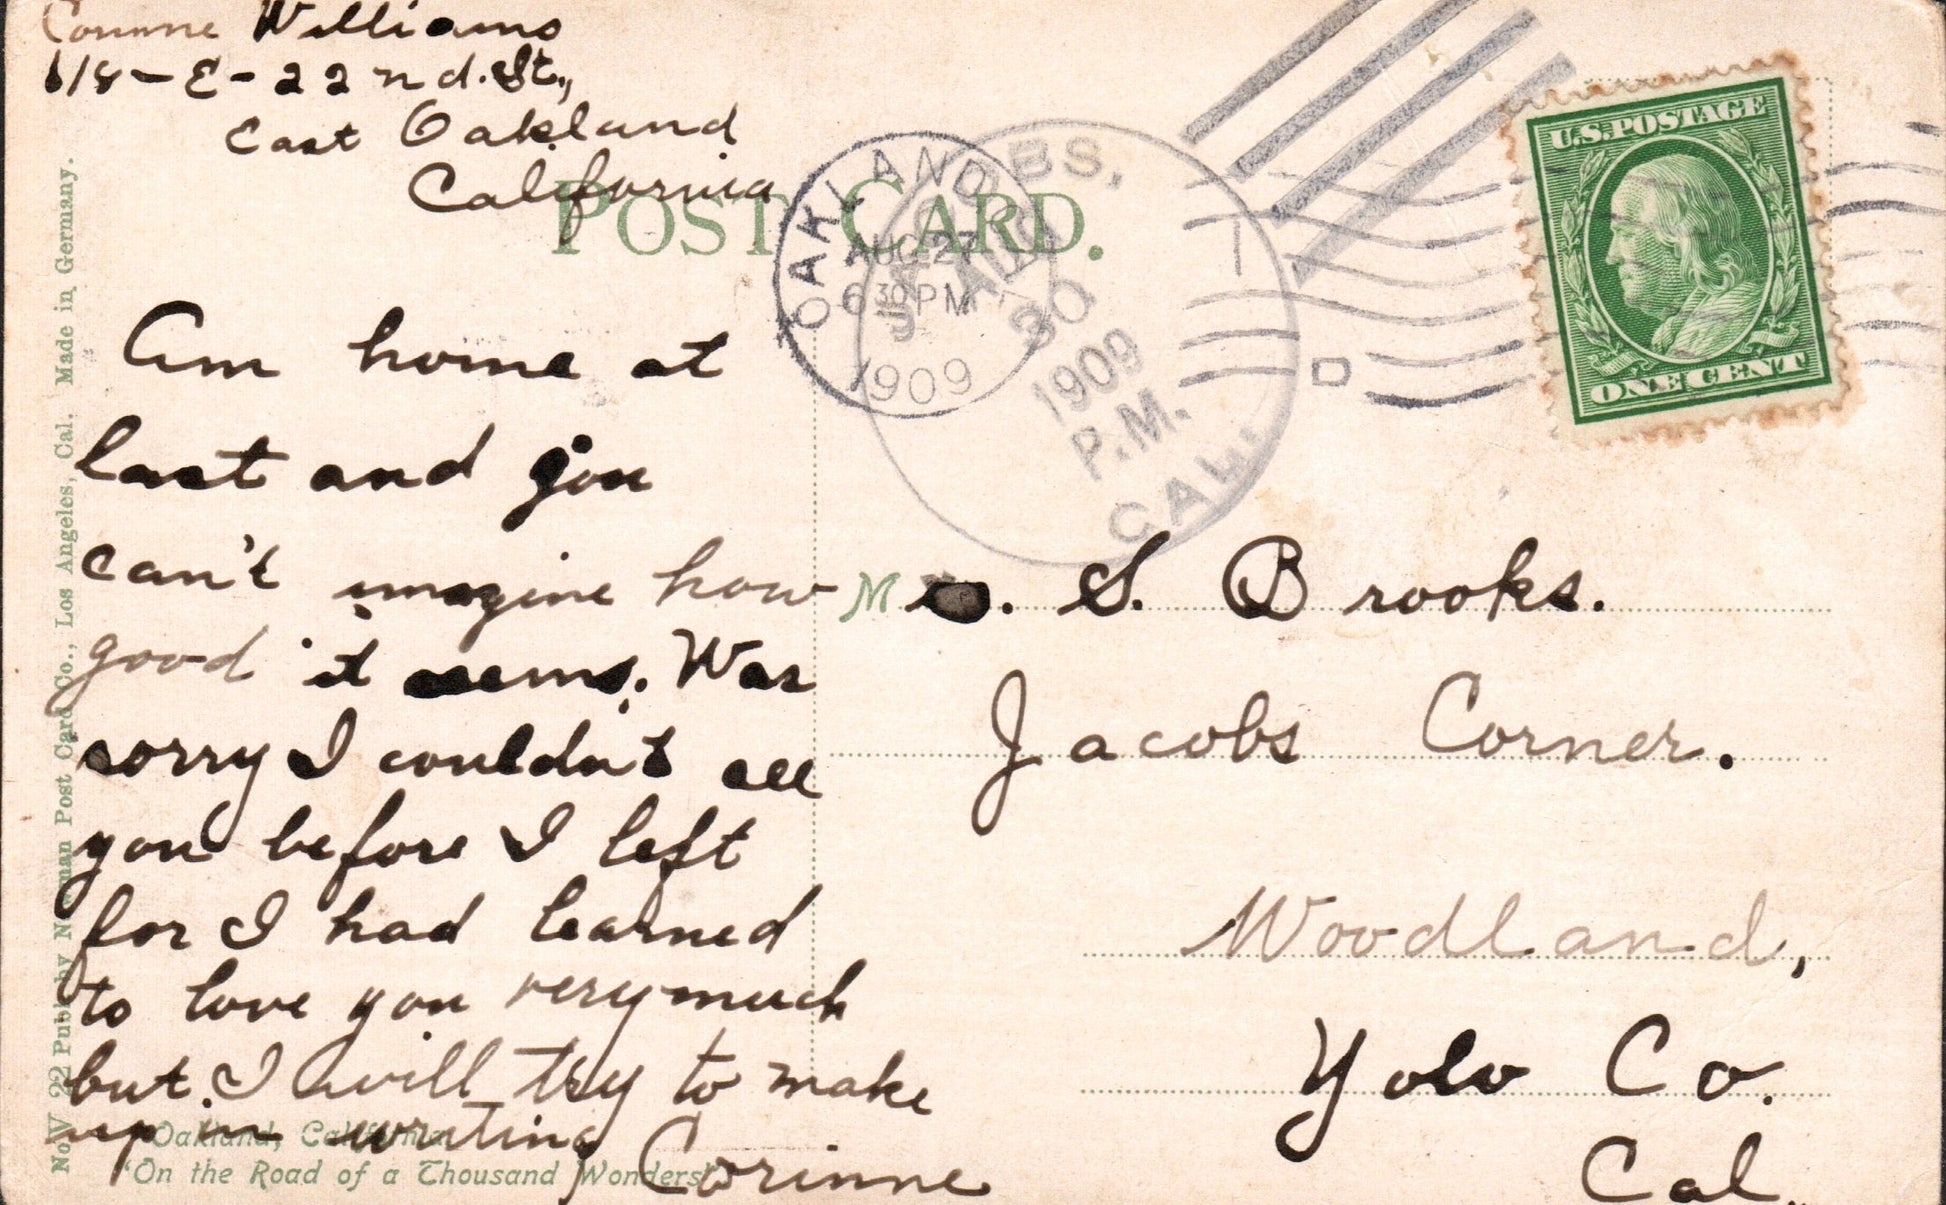 Corinne Williams
618-E-22nd. St.,
East Oakland
California
POST CARD.
OAKLAND
AUG 27
6 30 PM
1909
JACOBS,
AUG
30
1909
P.M.
CAL.
U.S. POSTAGE
ONE CENT
Am home at
last and you
can't imagine how
good it seems. Was
sorry I couldn't see
you before I left
for I had learned
to love you very much
but I will try to make
up in writing
Corinne
M S. Brooks.
Jacobs Corner.
Woodland,
Yolo Co.
Cal.
No. V 22 Publ. by Newman Post Card Co., Los Angeles, Cal. Made in Germany.
Oakland, California
"On the Road of a Thousand Wonders"